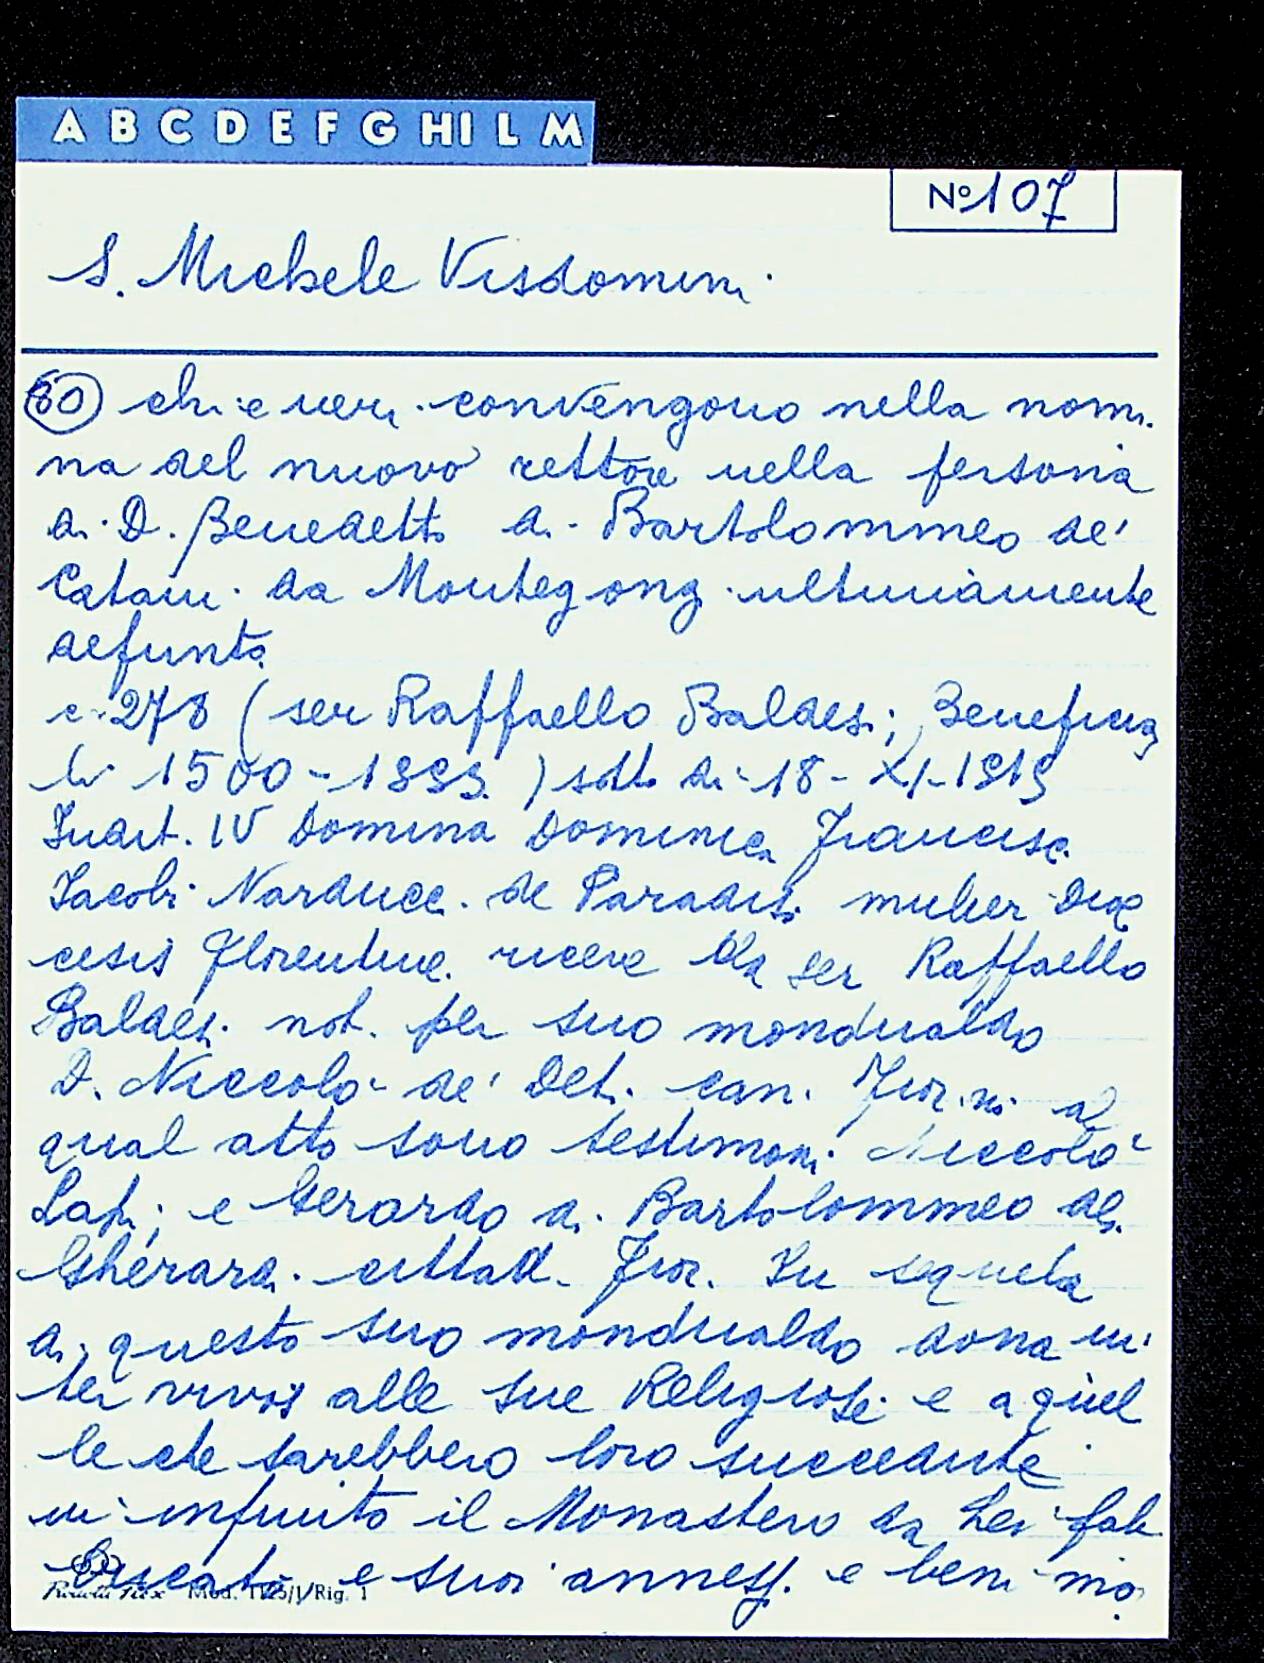 A B C D E F G HI L M
No 107
S. Michele Visdomini
(60) chi e veri convengono nella nomi
na del nuovo rettore nella persona
di D. Benedetto di Bartolommeo de'
Catani da Montegonzi ultimamente
defunto
c. 278 (ser Raffaello Baldesi; Benefizia
li 1500-1533.) sotto di 18-XI-1515
Indit. IV Domina Dominica Francisci
Iacobi Narducci de Paradisi mulier Dioe
cesis Florentine riceve da ser Raffaello
Baldesi not. per suo mondualdo
D. Niccolò de' Deti can. Fior.no al
qual atto sono testimoni Niccolò
Lapi; e Gerardo di Bartolommeo de'
Gherardi cittad. Fior. In sequela
di questo suo mondualdo dona in
ter vivos alle sue Religiose e a quel
le che sarebbero loro succedute
in infinito il Monastero da Lei fab
bricato e suoi annessi e beni mo
Mod. 1125/J/Rig. 1